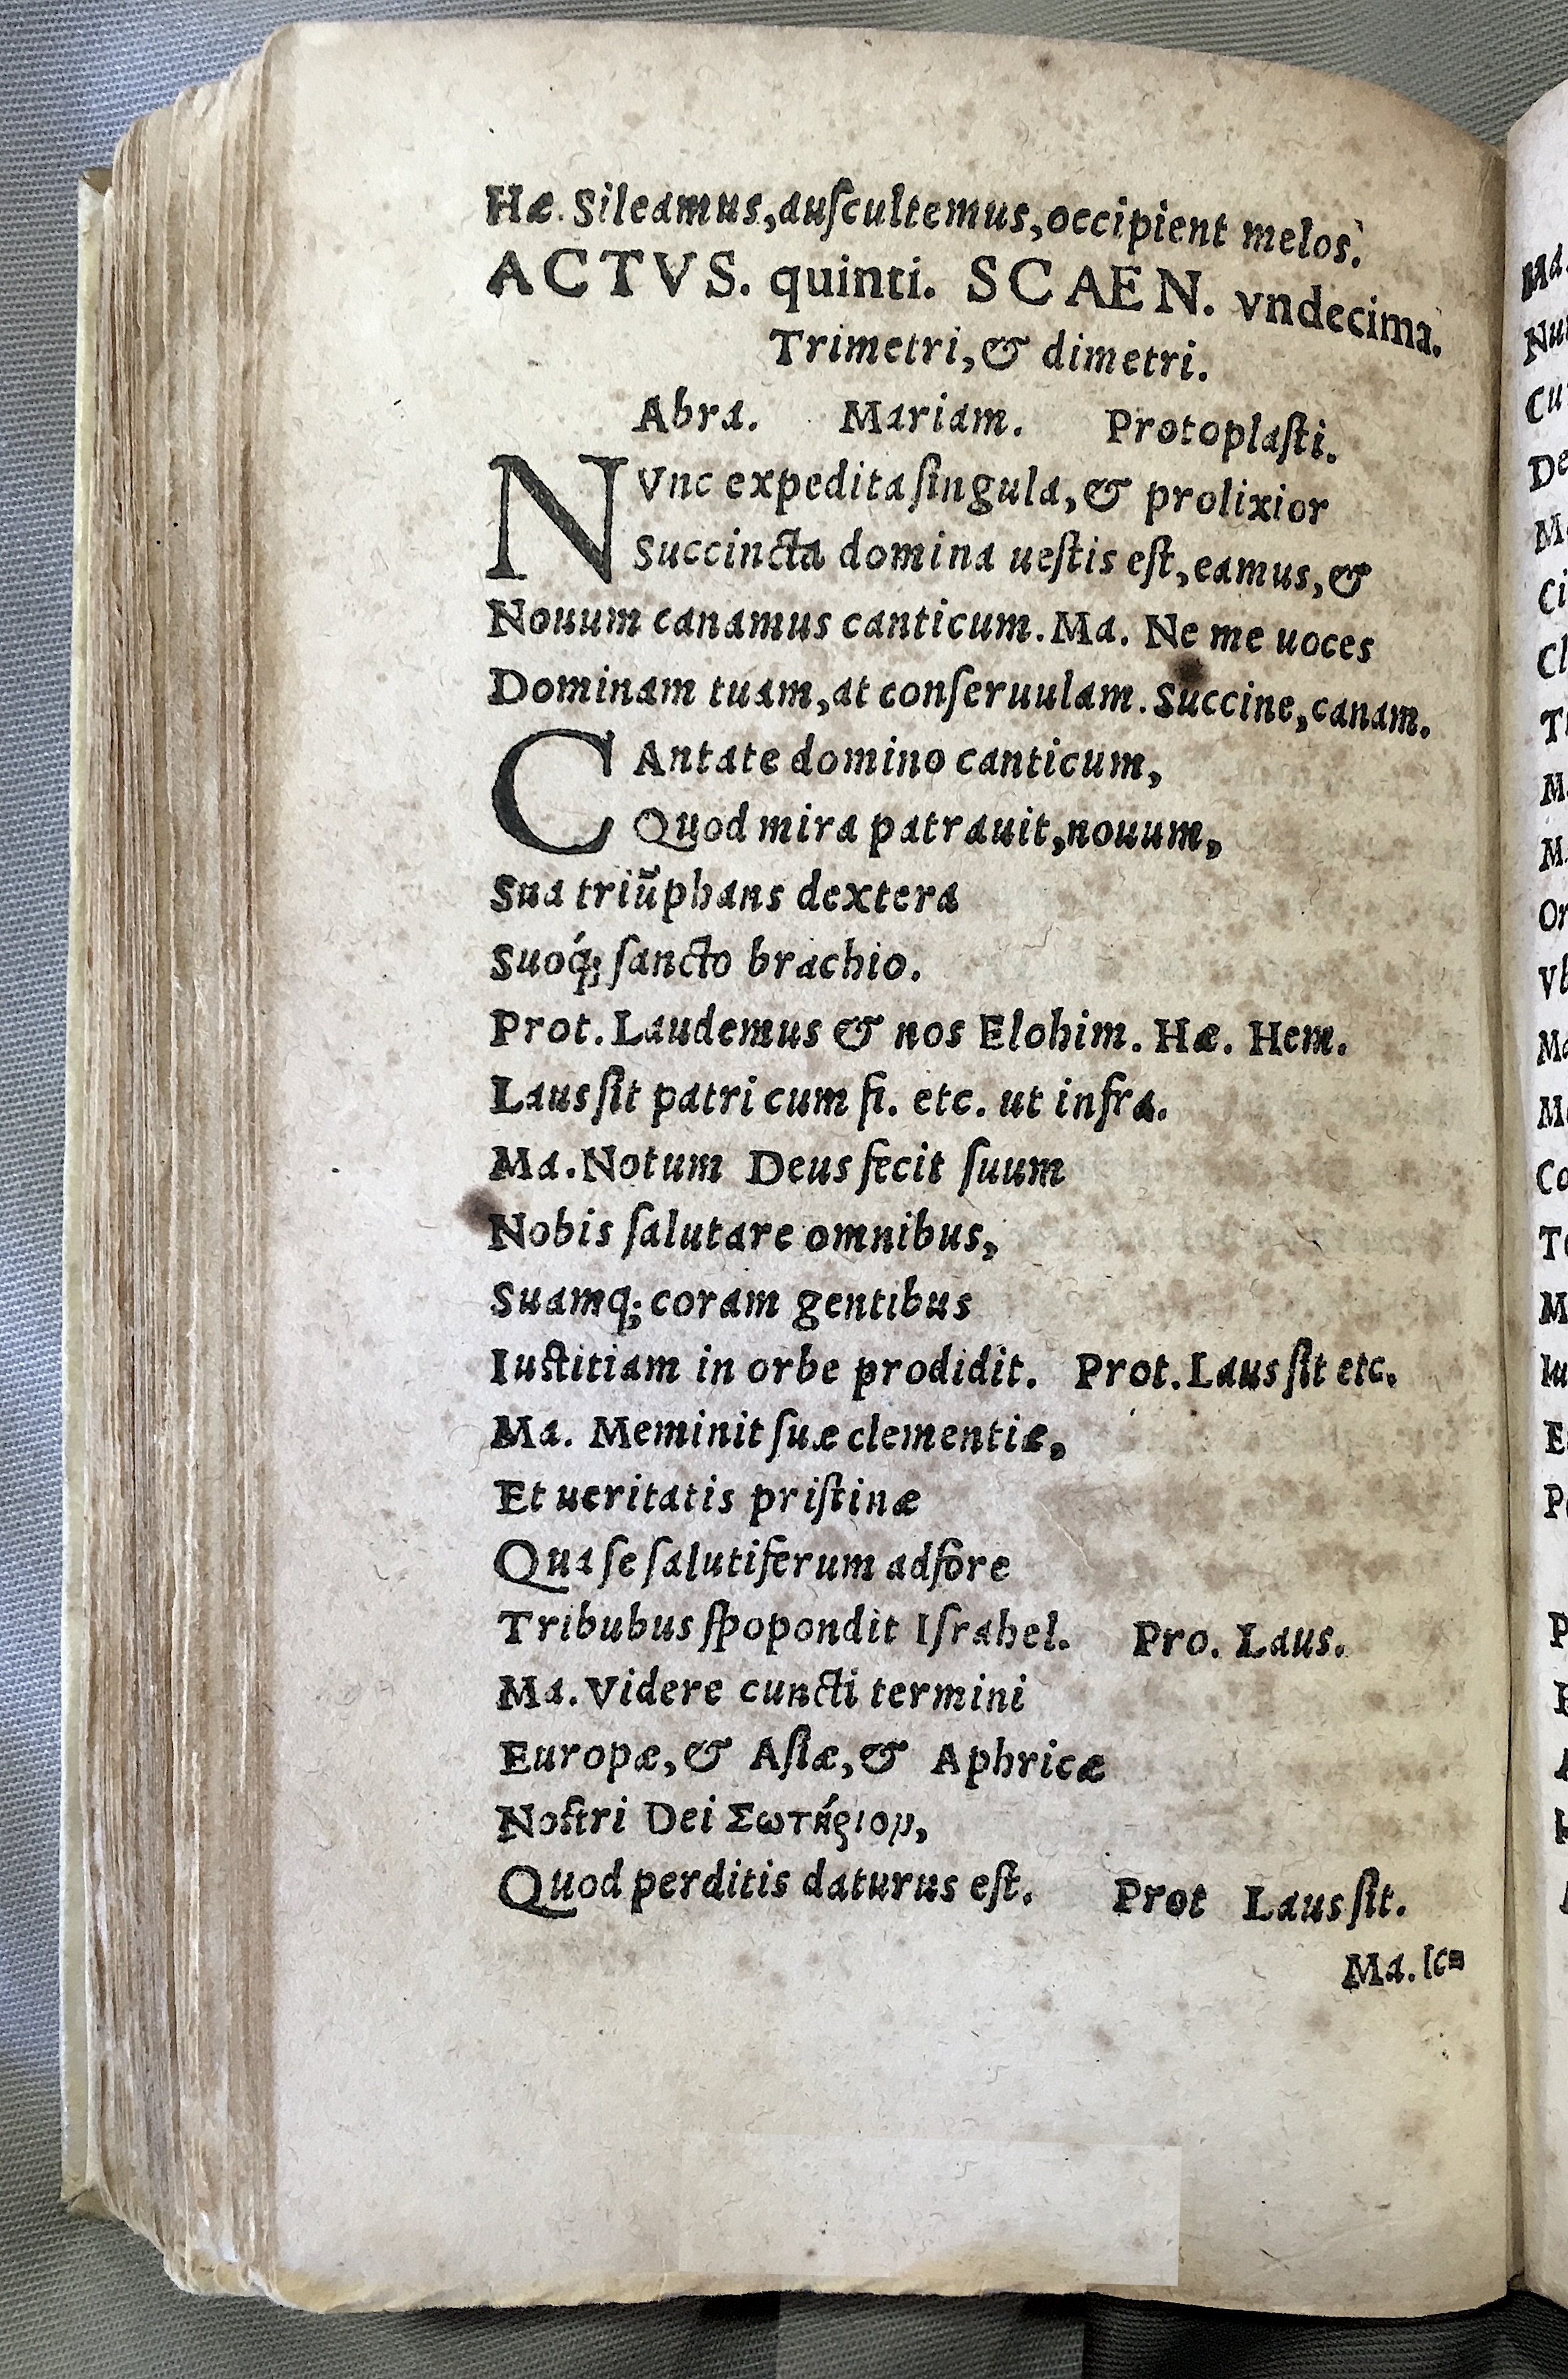 Hæ. Sileamus, auſcultemus, occipient melos.
ACTVS. quinti. SCAEN. vndecima.
Trimetri, & dimetri.
Abra. Mariam. Protoplaſti.
NVnc expedita ſingula, & prolixior
Succincta domina ueſtis eſt, eamus, &
Nouum canamus canticum. Ma. Ne me uoces
Dominam tuam, at conſeruulam. Succine, canam.
CAntate domino canticum,
Quod mira patrauit, nouum,
Sua triũphans dextera
Suoq́; ſancto brachio.
Prot. Laudemus & nos Elohim. Hæ. Hem.
Laus ſit patri cum fi. etc. ut infra.
Ma. Notum Deus fecit ſuum
Nobis ſalutare omnibus,
Suamq; coram gentibus
Iuſtitiam in orbe prodidit. Prot. Laus ſit etc.
Ma. Meminit ſuæ clementiæ,
Et ueritatis priſtinæ
Qua ſe ſalutiferum adfore
Tribubus ſpopondit Iſrahel. Pro. Laus.
Ma. Videre cuncti termini
Europæ, & Aſiæ, & Aphricæ
Noſtri Dei Σωτήριον,
Quod perditis daturus eſt. Prot Laus ſit.
Ma.
Ma.
Nu
Cu
De
Ci